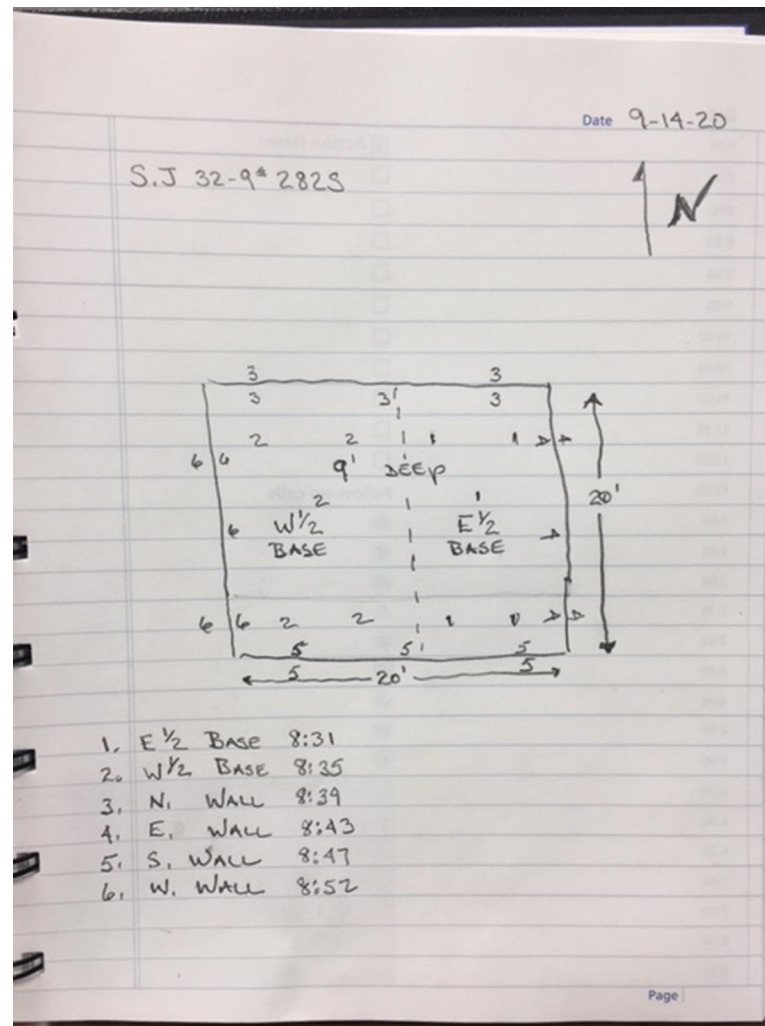 Date 9-14-20
S.J 32-9# 282S
N
3 3
3 3' 3
2 2 1 1 4 4
6 6
9' DEEP
2 1
20'
W 1/2 E 1/2
6 4
BASE BASE
6 6 2 2 1 1 4 4
5 5' 5
5 20' 5
1. E 1/2 BASE 8:31
2. W 1/2 BASE 8:35
3. N. WALL 8:39
4. E. WALL 8:43
5. S. WALL 8:47
6. W. WALL 8:52
Page